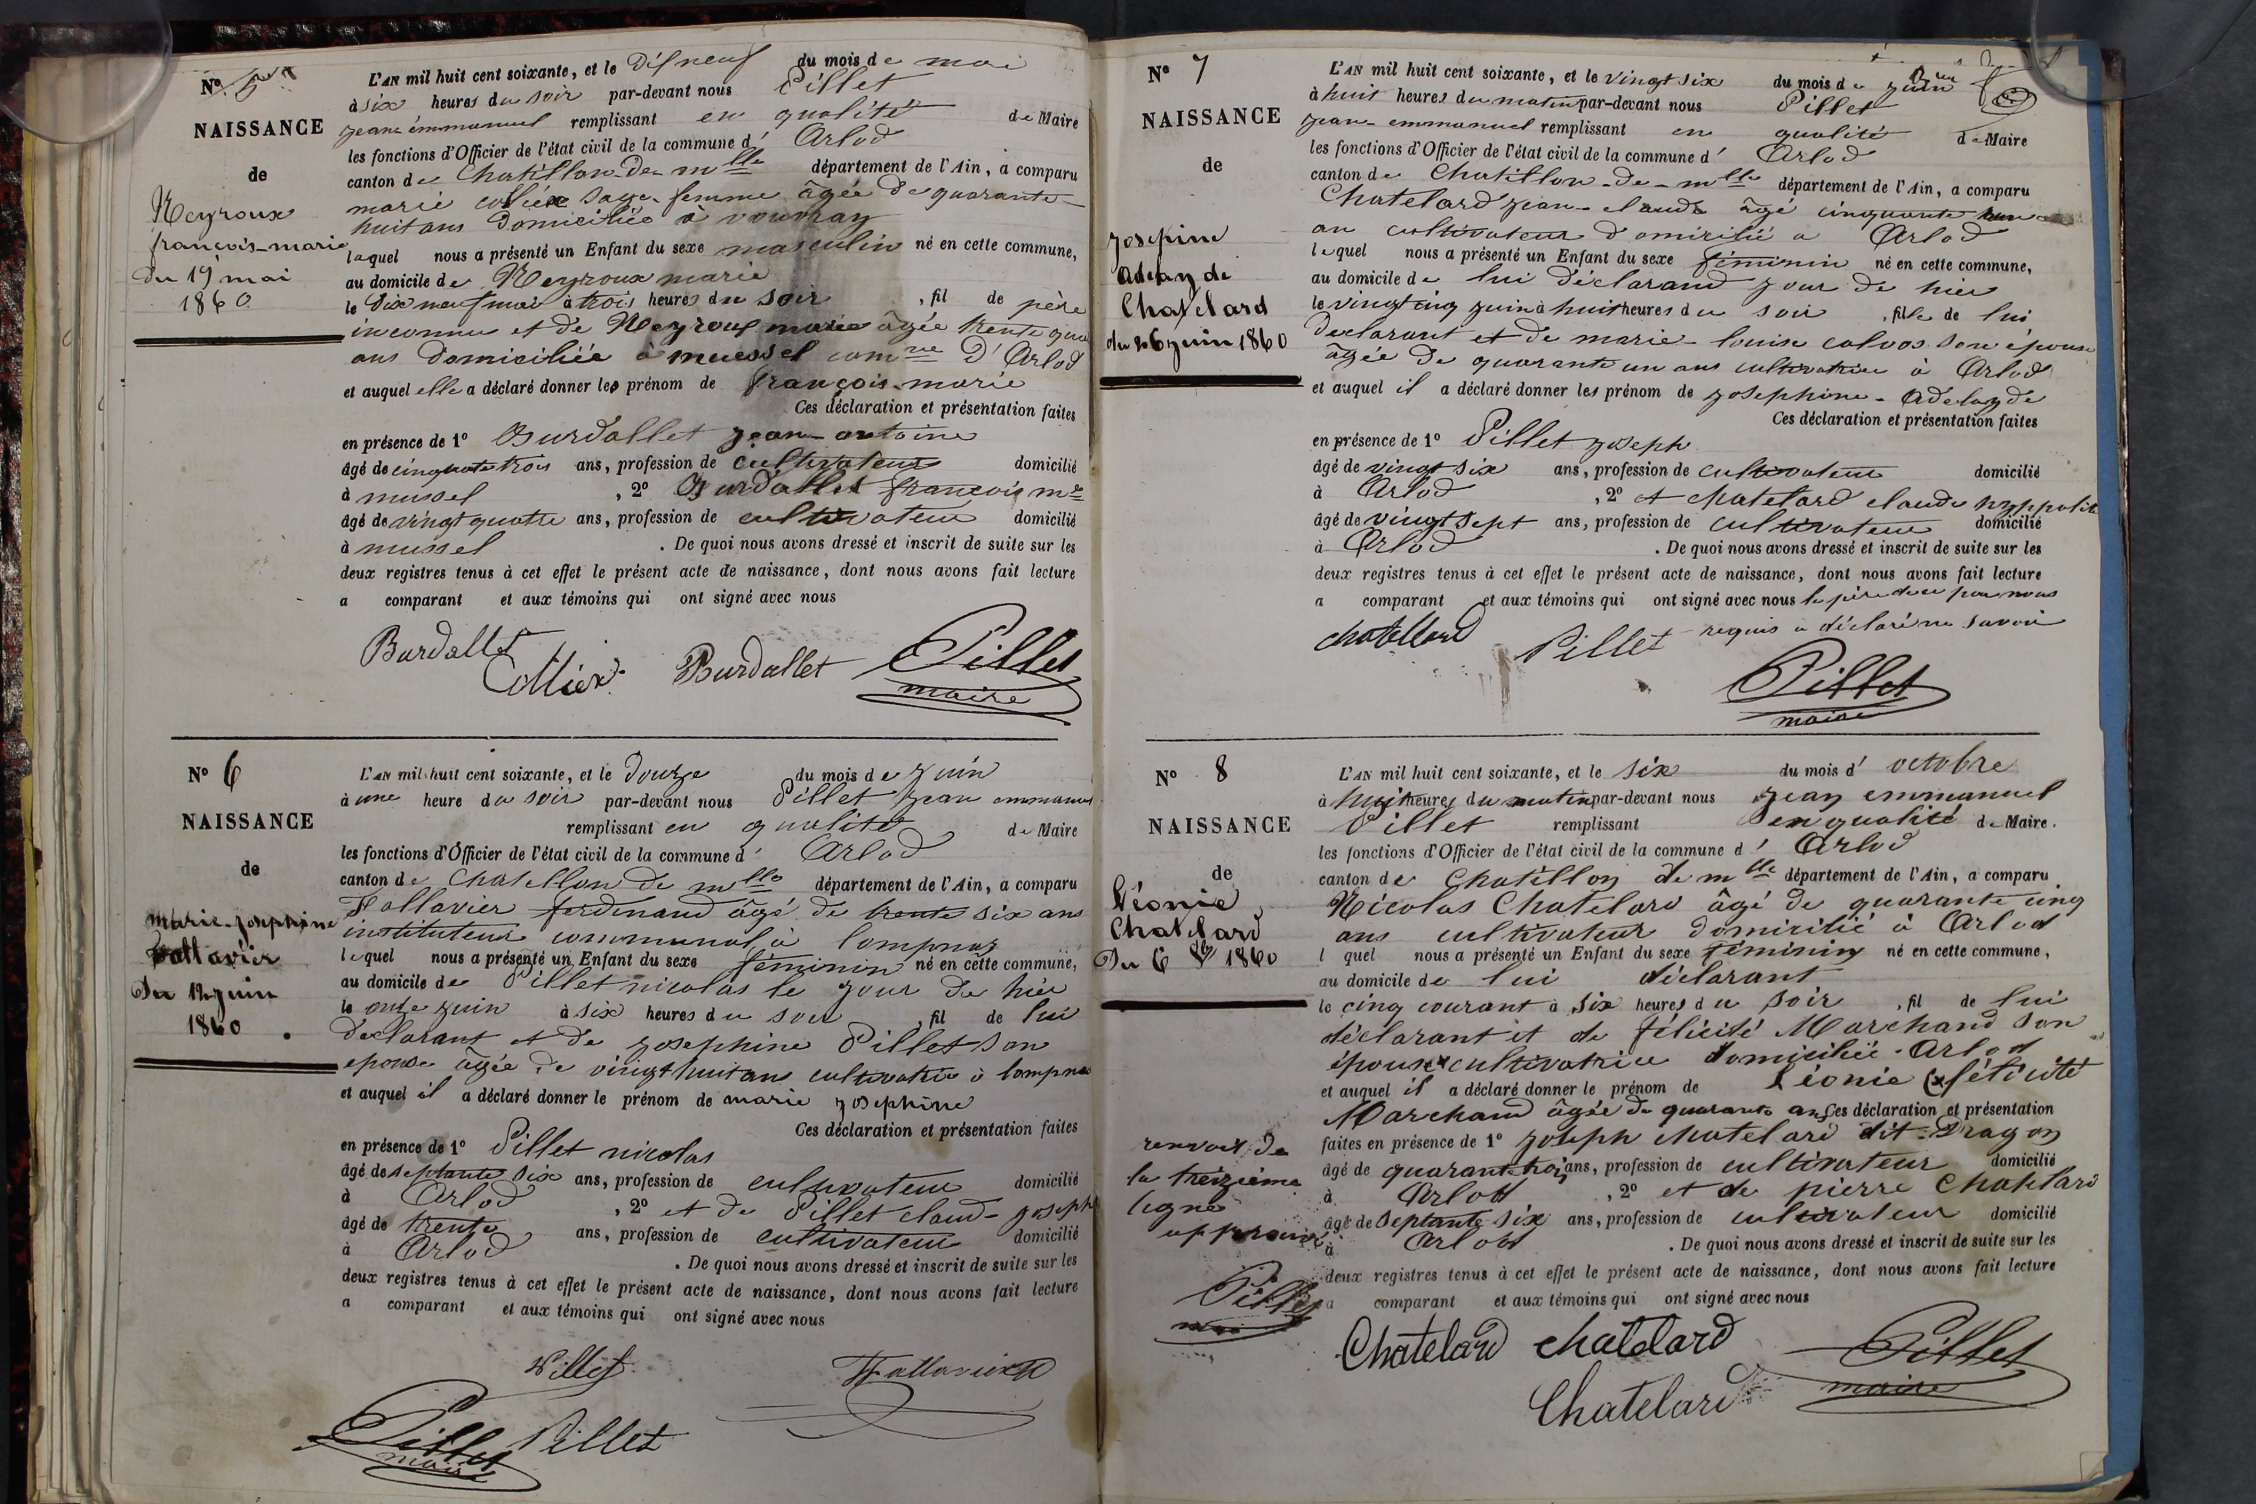 Nº 5
NAISSANCE
de
Neyroux
françois-marie
du 19 mai
1860
L'AN mil huit cent soixante, et le dis neuf du mois de mai
à six heures du soir par-devant nous Pillet
jean emmanuel remplissant en qualité de Maire
les fonctions d'Officier de l'état civil de la commune d' Arlod
canton de Chatillon-de-mlle département de l'Ain, a comparu
marie colliex sage-femme âgée de quarante-
huit ans domiciliée à vouvray
laquel nous a présenté un Enfant du sexe masculin né en cette commune,
au domicile de Neyroux marie
le dix neuf mai à trois heures du soir , fil de père
inconnu et de Neyroux marie âgée trente
ans domiciliée à mussel comne d'Arlod
et auquel elle a déclaré donner les prénom de françois-marie
Ces déclaration et présentation faites
en présence de 1º Burdallet jean-antoine
âgé de cinquante trois ans, profession de cultivateur domicilié
à mussel , 2º Burdallet françois me
âgé de vingt quatre ans, profession de cultivateur domicilié
à mussel . De quoi nous avons dressé et inscrit de suite sur les
deux registres tenus à cet effet le présent acte de naissance, dont nous avons fait lecture
a comparant et aux témoins qui ont signé avec nous
Burdallet Colliex Burdallet Pillet
maire
Nº 6
NAISSANCE
de
marie-josephine
vallavier
du 12 juin
1860
L'AN mil huit cent soixante, et le douze du mois de juin
à une heure du soir par-devant nous Pillet jean emmanuel
remplissant en qualité de Maire
les fonctions d'Officier de l'état civil de la commune d' Arlod
canton de Chatillon de mlle département de l'Ain, a comparu
ferdinand âgé de trente six ans
instituteur communal à lompnas
lequel nous a présenté un Enfant du sexe féminin né en cette commune,
au domicile de Pillet nicolas le jour de hier
le onze juin à six heures du soir , fil de lui
déclarant et de josephine Pillet son
épouse âgée de vingt huit ans cultivatrice à lompnas
et auquel il a déclaré donner le prénom de marie josephine
Ces déclaration et présentation faites
en présence de 1º Pillet nicolas
âgé de septante six ans, profession de cultivateur domicilié
à Arlod , 2º et de Pillet claud-joseph
âgé de trente ans, profession de cultivateur domicilié
à Arlod . De quoi nous avons dressé et inscrit de suite sur les
deux registres tenus à cet effet le présent acte de naissance, dont nous avons fait lecture
a comparant et aux témoins qui ont signé avec nous
Pillet
Pillet Pillet
maire
Nº 7
NAISSANCE
de
josepine
adelayde
Chatelard
du 26 juin 1860
L'AN mil huit cent soixante, et le vingt six du mois de juin
à huit heures du matin par-devant nous Pillet
jean-emmanuel remplissant en qualité de Maire
les fonctions d'Officier de l'état civil de la commune d' Arlod
canton de Chatillon-de-mlle département de l'Ain, a comparu
Chatelard jean-claude âgé cinquante
an cultivateur domicilié a Arlod
lequel nous a présenté un Enfant du sexe féminin né en cette commune,
au domicile de lui déclarand jour de hier
le vingt cinq juin à huit heures du soir , fille de lui
declarant et de marie-louise son épouse
âgée de quarante un ans cultivatrice à Arlod
et auquel il a déclaré donner les prénom de josephine-adelayde
Ces déclaration et présentation faites
en présence de 1º Pillet joseph
âgé de vingt six ans, profession de cultivateur domicilié
à Arlod , 2º et chatelard claude hyppolite
âgé de vingt sept ans, profession de cultivateur domicilié
à Arlod . De quoi nous avons dressé et inscrit de suite sur les
deux registres tenus à cet effet le présent acte de naissance, dont nous avons fait lecture
a comparant et aux témoins qui ont signé avec nous le père de ce par nous
requis a déclaré ne savoir
chatellard Pillet
Pillet
maire
Nº 8
NAISSANCE
de
Léonie
Chatelard
Du 6 1860
L'AN mil huit cent soixante, et le six du mois d' octobre
à huit heures du matin par-devant nous jean emmanuel
Pillet remplissant en qualité de Maire.
les fonctions d'Officier de l'état civil de la commune d' Arlod
canton de Chatillon de mlle département de l'Ain, a comparu
Nicolas Chatelard âgé de quarante cinq
ans cultivateur domicilié à Arlod
l quel nous a présenté un Enfant du sexe féminin né en cette commune,
au domicile de lui déclarant
le cinq courant à six heures du soir , fil de lui
déclarant et de félicité Marchand son
épouse x cultivatrice domiciliée Arlod
et auquel il a déclaré donner le prénom de Léonie (x félicité
Marchand âgée de quarante ans Ces déclaration et présentation
faites en présence de 1º joseph chatelard dit-Dragon
âgé de quarante trois ans, profession de cultivateur domicilié
à Arlod , 2º et de pierre Chatelard
âgé de septante six ans, profession de cultivateur domicilié
à Arlod . De quoi nous avons dressé et inscrit de suite sur les
deux registres tenus à cet effet le présent acte de naissance, dont nous avons fait lecture
a comparant et aux témoins qui ont signé avec nous
renvoit de
la treizième
ligne
approuvé
Pillet
maire
Chatelard chatelard Pillet
maire
Chatelard